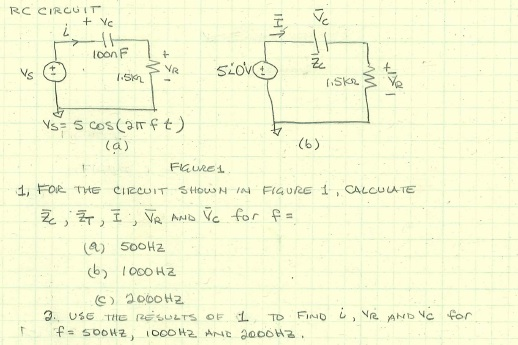 RC CIRCUIT
+ Vc
i
100nF
Vs
+
-
1.5KΩ
+
VR
-
Vs = 5 cos(2πft)
(a)
I̅
V̅c
Z̅c
5∠0V
+
-
1.5KΩ
+
V̅R
-
(b)
FIGURE 1
1, FOR THE CIRCUIT SHOWN IN FIGURE 1, CALCULATE
Z̅c, Z̅T, I̅, V̅R AND V̅c for f =
(a) 500HZ
(b) 1000HZ
(c) 2000HZ
2. USE THE RESULTS OF 1 TO FIND i, VR AND Vc for
f = 500HZ, 1000HZ AND 2000HZ.